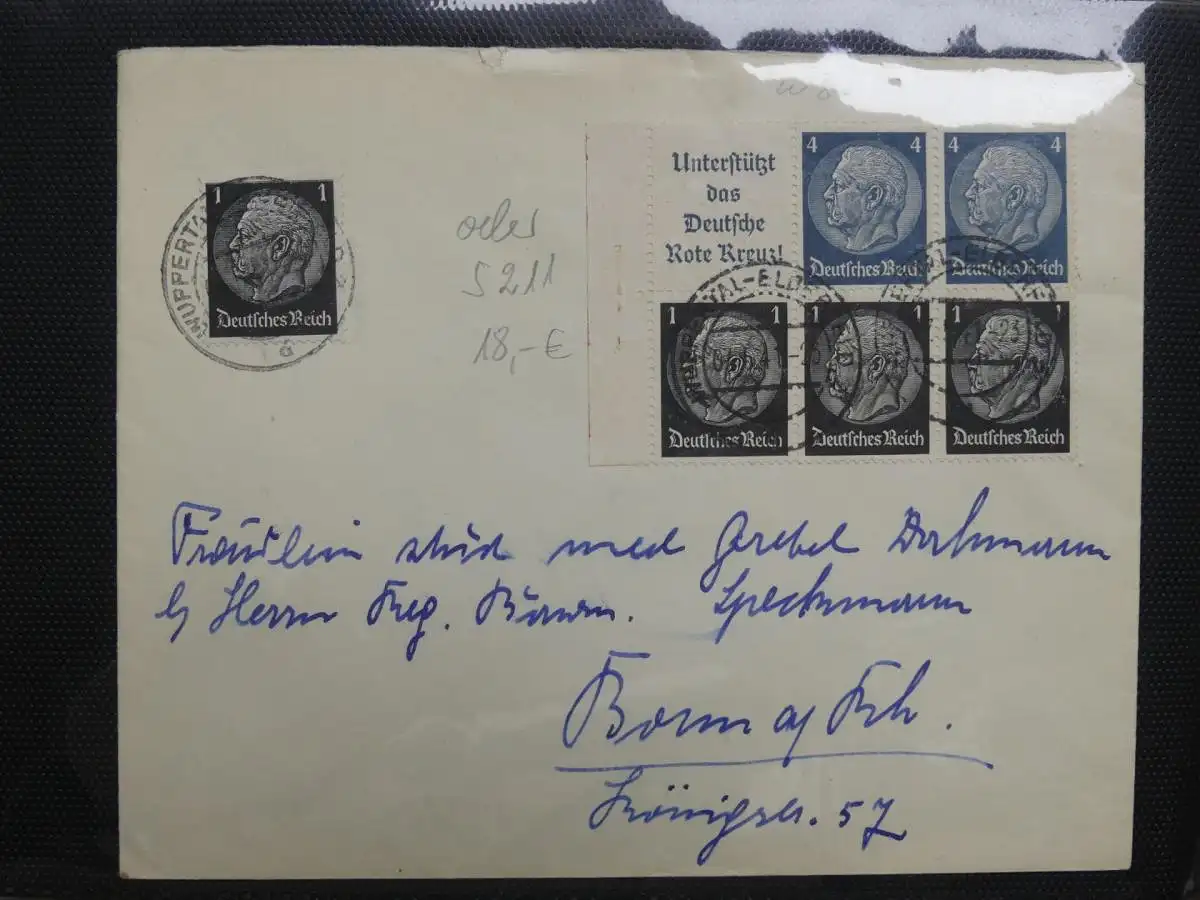 1 1
Deutsches Reich
WUPPERTAL
d
oder
S 211
18,- €
Unterstützt
das
Deutsche
Rote Kreuz!
4 4
Deutsches Reich
4 4
Deutsches Reich
1 1
Deutsches Reich
1 1
Deutsches Reich
1 1
Deutsches Reich
WUPPERTAL-ELBERFELD
Fräulein stud med Gerebel Dorhmann
b/ Herrn Reg. Baurm. Speckmann
Bonn a/ Rh.
Königstr. 57